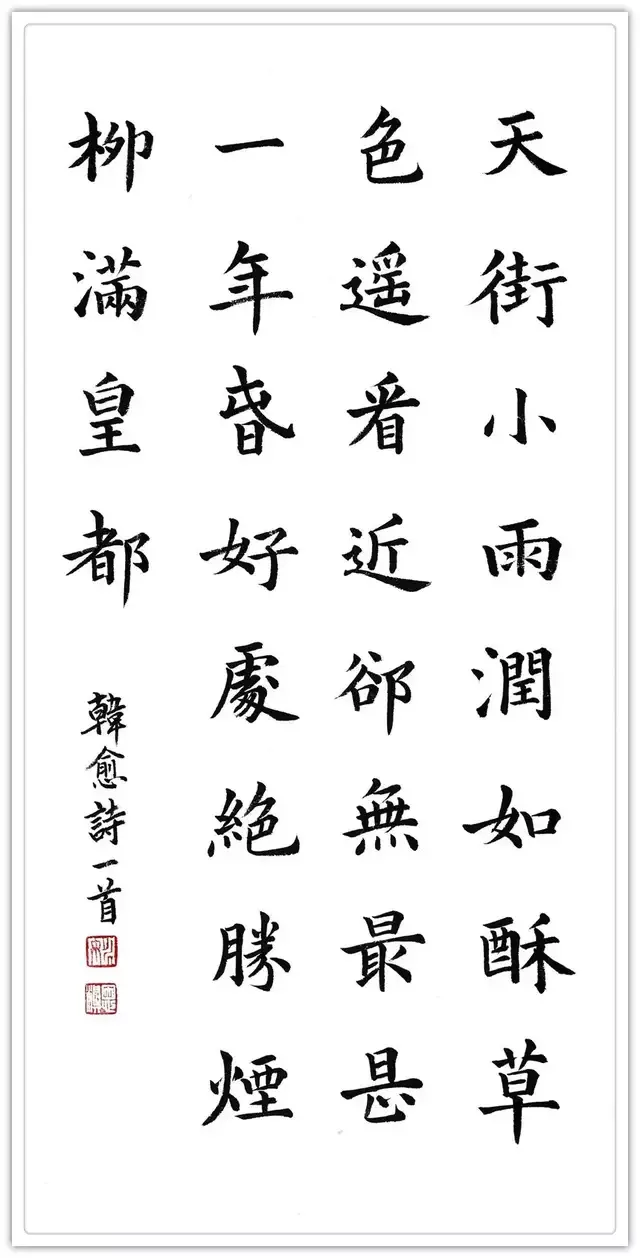 天街小雨潤如酥草
色遥看近郤無最是
一年春好處絶勝煙
柳滿皇都
韓愈詩一首